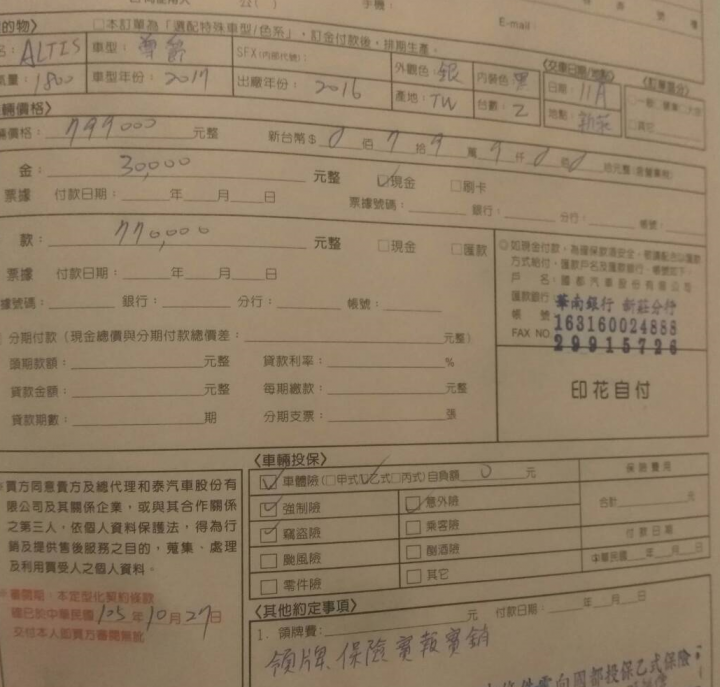 手機：
E-mail：
的物〉 □本訂單為「選配特殊車型/色系」，訂金付款後，排期生產。
ALTIS 車型：尊爵 SFX(內部代號)： 外觀色：銀 內裝色：黑 〈交車日期/地點〉 〈訂單區分〉
氣量：1800 車型年份：2017 出廠年份：2016 產地：TW 台數：2 日期：11月 地點：新莊
輛價格〉
輛價格：799000 元整 新台幣$ 0 佰 7 拾 9 萬 9 仟 0 佰 0 拾元整(含營業稅)
金：30,000 元整 ☑現金 □刷卡
票據 付款日期：____年____月____日 票據號碼：____ 銀行：____ 分行：____ 帳號：____
款：770,000 元整 □現金 □匯款
票據 付款日期：____年____月____日
據號碼：____ 銀行：____ 分行：____ 帳號：____
◎如現金付款，為確保款項安全，敬請配合以匯款
方式給付，匯款戶名及匯款銀行、帳號如下。
戶 名：國都汽車股份有限公司
匯款銀行 華南銀行 新莊分行
帳 號 163160024888
FAX NO 29915726
印花自付
分期付款 (現金總價與分期付款總價差：____元整)
頭期款額：____元整 貸款利率：____%
貸款金額：____元整 每期繳款：____元整
貸款期數：____期 分期支票：____張
買方同意貴方及總代理和泰汽車股份有
限公司及其關係企業，或與其合作關係
之第三人，依個人資料保護法，得為行
銷及提供售後服務之目的，蒐集、處理
及利用買受人之個人資料。
※審閱期：本定型化契約條款
業已於中華民國105年10月27日
交付本人即買方審閱無訛
〈車輛投保〉
☑車體險(□甲式☑乙式□丙式)自負額 0 元 保險費用
☑強制險 ☑意外險 合計____元
☑竊盜險 □乘客險 付款日期
□颱風險 □酗酒險 中華民國__年__月__日
□零件險 □其它
〈其他約定事項〉
1. 領牌費：____元 付款日期：____年____月____日
領牌.保險實報實銷
向國都投保乙式保險；